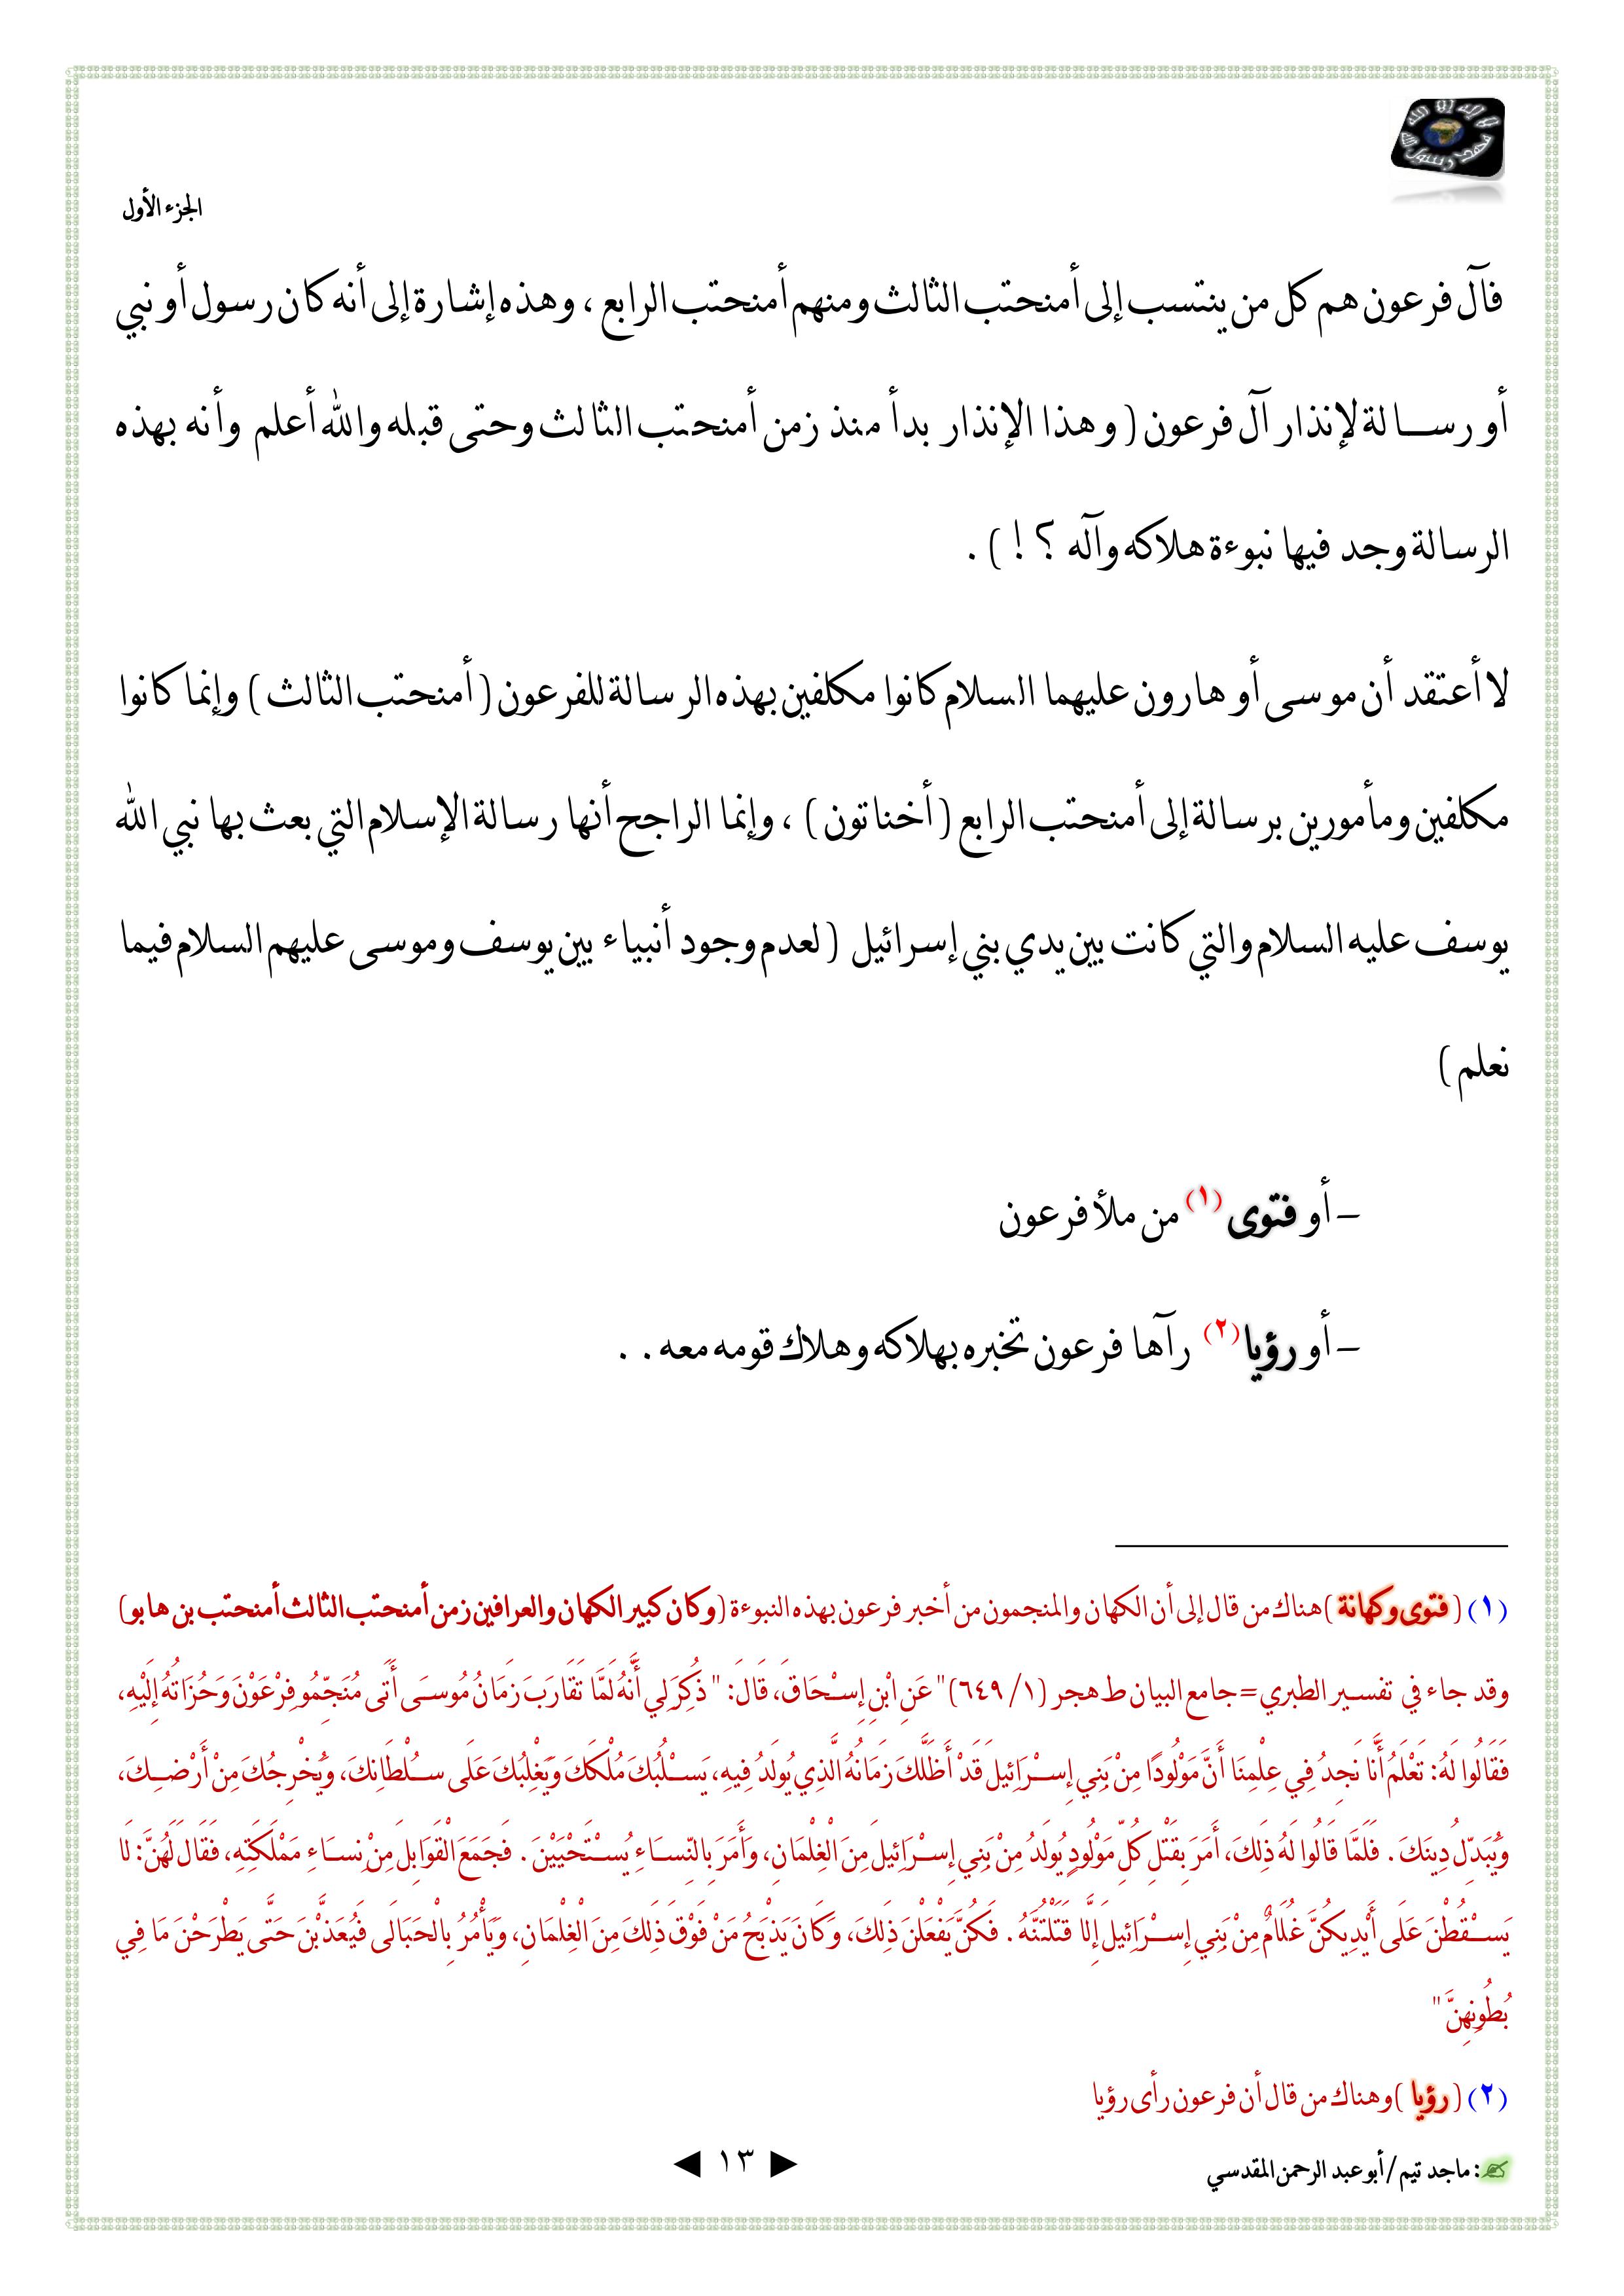 لا إله إلا الله
محمد رسول الله
الجزء الأول
فآل فرعون هم كل من ينتسب إلى أمنحتب الثالث ومنهم أمنحتب الرابع ، وهذه إشارة إلى أنه كان رسول أو نبي
أو رسالة لإنذار آل فرعون ( وهذا الإنذار بدأ منذ زمن أمنحتب الثالث وحتى قبله والله أعلم وأنه بهذه
الرسالة وجد فيها نبوءة هلاكه وآله ؟ ! ) .
لا أعتقد أن موسى أو هارون عليهما السلام كانوا مكلفين بهذه الرسالة للفرعون ( أمنحتب الثالث ) وإنما كانوا
مكلفين ومأمورين برسالة إلى أمنحتب الرابع ( أخناتون ) ، وإنما الراجح أنها رسالة الإسلام التي بعث بها نبي الله
يوسف عليه السلام والتي كانت بين يدي بني إسرائيل ( لعدم وجود أنبياء بين يوسف وموسى عليهم السلام فيما
نعلم )
– أو فتوى (١) من ملأ فرعون
– أو رؤيا (٢) رآها فرعون تخبره بهلاكه وهلاك قومه معه . .
(١) ( فتوى وكهانة ) هناك من قال إلى أن الكهان والمنجمون من أخبر فرعون بهذه النبوءة (وكان كبير الكهان والعرافين زمن أمنحتب الثالث أمنحتب بن هابو)
وقد جاء في تفسير الطبري = جامع البيان ط هجر (١/ ٦٤٩) " عَنِ ابْنِ إِسْحَاقَ، قَالَ: " ذُكِرَ لِي أَنَّهُ لَمَّا تَقَارَبَ زَمَانُ مُوسَى أَتَى مُنَجِّمُو فِرْعَوْنَ وَحُزَاتُهُ إِلَيْهِ،
فَقَالُوا لَهُ: تَعْلَمُ أَنَّا نَجِدُ فِي عِلْمِنَا أَنَّ مَوْلُودًا مِنْ بَنِي إِسْرَائِيلَ قَدْ أَظَلَّكَ زَمَانُهُ الَّذِي يُولَدُ فِيهِ، يَسْلُبُكَ مُلْكَكَ وَيَغْلِبُكَ عَلَى سُلْطَانِكَ، وَيُخْرِجُكَ مِنْ أَرْضِكَ،
وَيُبَدِّلُ دِينَكَ . فَلَمَّا قَالُوا لَهُ ذَلِكَ، أَمَرَ بِقَتْلِ كُلِّ مَوْلُودٍ يُولَدُ مِنْ بَنِي إِسْرَائِيلَ مِنَ الْغِلْمَانِ، وَأَمَرَ بِالنِّسَاءِ يُسْتَحْيَيْنَ . فَجَمَعَ الْقَوَابِلَ مِنْ نِسَاءِ مَمْلَكَتِهِ، فَقَالَ لَهُنَّ: لَا
يَسْقُطْنَ عَلَى أَيْدِيكُنَّ غُلَامٌ مِنْ بَنِي إِسْرَائِيلَ إِلَّا قَتَلْتُنَّهُ . فَكُنَّ يَفْعَلْنَ ذَلِكَ، وَكَانَ يَذْبَحُ مَنْ فَوْقَ ذَلِكَ مِنَ الْغِلْمَانِ، وَيَأْمُرُ بِالْحَبَالَى فَيُعَذَّبْنَ حَتَّى يَطْرَحْنَ مَا فِي
بُطُونِهِنَّ "
(٢) ( رؤيا ) وهناك من قال أن فرعون رأى رؤيا
: ماجد تيم / أبو عبد الرحمن المقدسي
◄ ١٣ ►